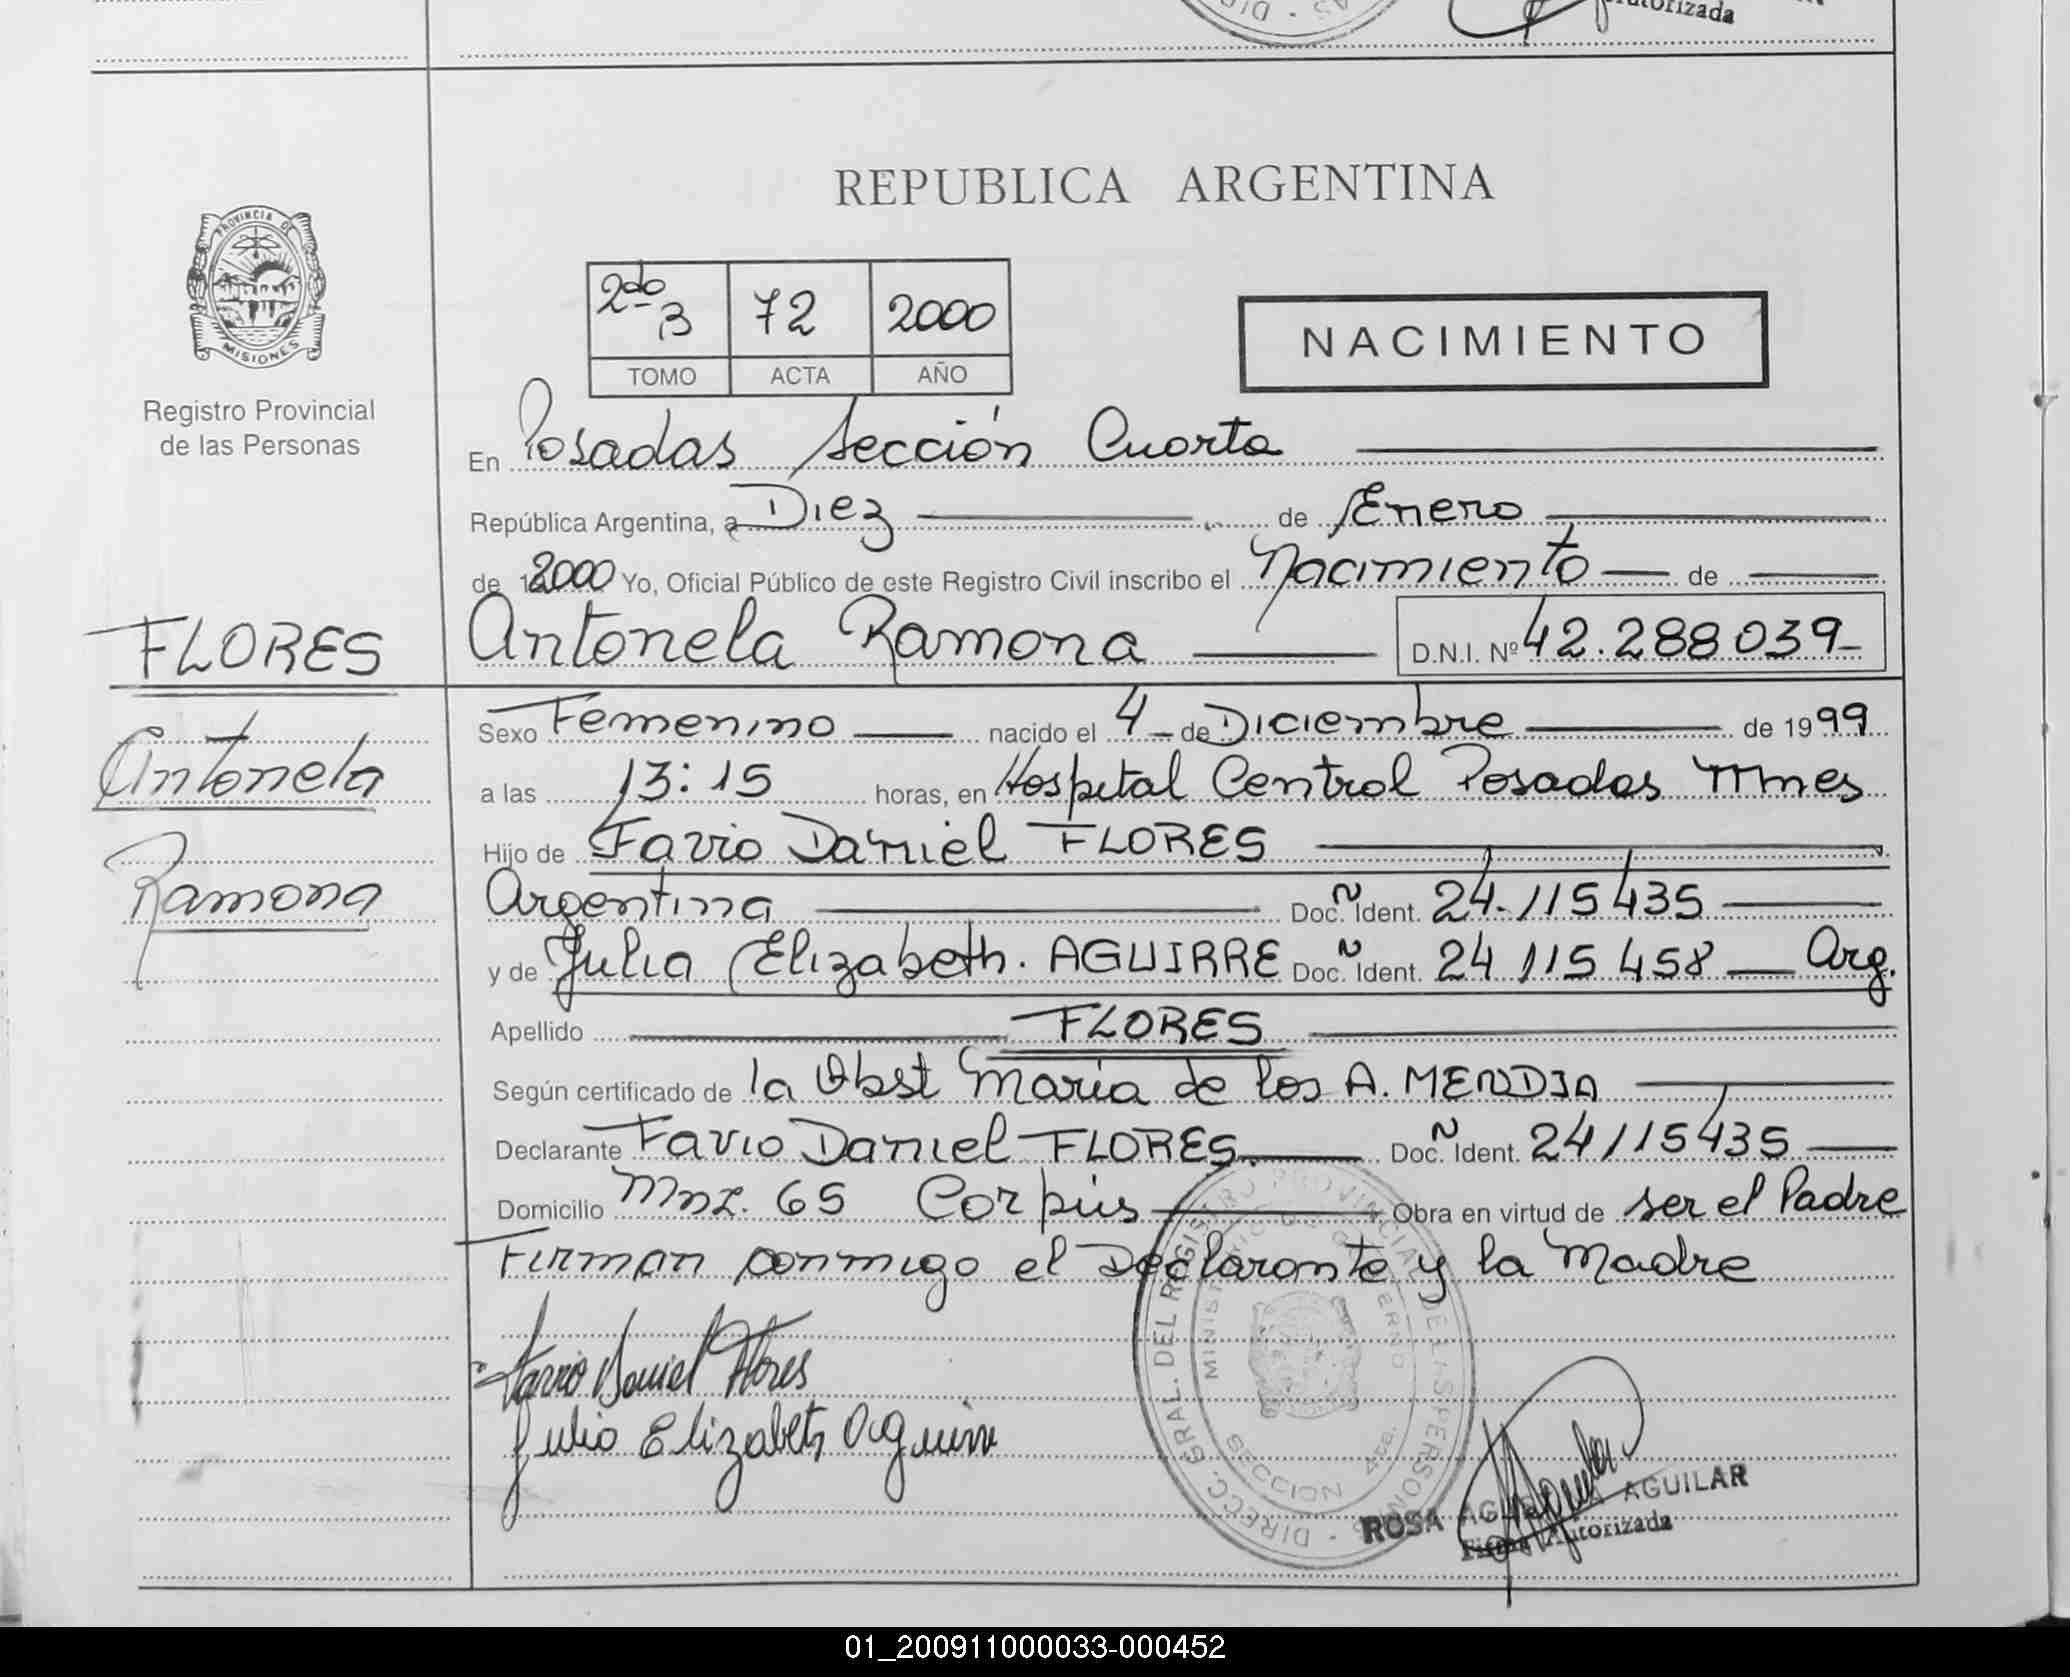 utorizada
REPUBLICA ARGENTINA
PROVINCIA DE
MISIONES
Registro Provincial
de las Personas
2do 3 72 2000
TOMO ACTA AÑO
NACIMIENTO
En Posadas Sección Cuarta
República Argentina, a Diez de Enero
de 2000 Yo, Oficial Público de este Registro Civil inscribo el Nacimiento de
FLORES Antonela Ramona D.N.I. Nº 42.288039
Antonela
Ramona
Sexo Femenino nacido el 4 de Diciembre de 1999
a las 13:15 horas, en Hospital Central Posadas Mnes
Hijo de Favio Daniel FLORES
Argentina Doc. Ident. 24.115435
y de Julia Elizabeth. AGUIRRE Doc. Ident. 24 115 458 Arg.
Apellido FLORES
Según certificado de la Obst Maria de los A. MENDIA
Declarante Favio Daniel FLORES. Doc. Ident. 24115435
Domicilio Mnz. 65 Corpus Obra en virtud de ser el Padre
Firman conmigo el Declarante y la Madre
Favio Daniel Flores
Julia Elizabeth Aguirre
DIRECC. GRAL. DEL REGISTRO PROVINCIAL DE LAS PERSONAS
MINISTERIO DE GOBIERNO
SECCION 4ta.
ROSA AGUILAR
Firma Autorizada
01_200911000033-000452